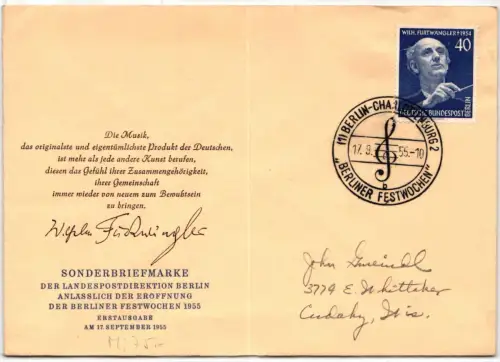 WILH. FURTWÄNGLER † 1954
40
DEUTSCHE BUNDESPOST
BERLIN
(1) BERLIN-CHARLOTTENBURG 2
17.9. 55.-10
b
„BERLINER FESTWOCHEN"
Die Musik,
das originalste und eigentümlichste Produkt der Deutschen,
ist mehr als jede andere Kunst berufen,
diesen das Gefühl ihrer Zusammengehörigkeit,
ihrer Gemeinschaft
immer wieder von neuem zum Bewußtsein
zu bringen.
Wilhelm Furtwängler
SONDERBRIEFMARKE
DER LANDESPOSTDIREKTION BERLIN
ANLÄSSLICH DER ERÖFFNUNG
DER BERLINER FESTWOCHEN 1955
ERSTAUSGABE
AM 17. SEPTEMBER 1955
John
3779 E. Whittaker
Cudahy, Wis.